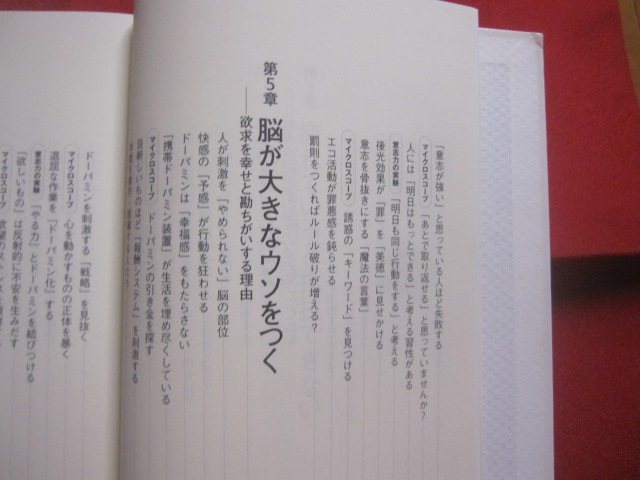 「意志が強い」と思っている人ほど失敗する
マイクロスコープ 「あとで取り返せる」と思っていませんか?
人には「明日はもっとできる」と考える習性がある
意志力の実験 「明日も同じ行動をする」と考える
後光効果が「罪」を「美徳」に見せかける
意志を骨抜きにする「魔法の言葉」
マイクロスコープ 誘惑の「キーワード」を見つける
エコ活動が罪悪感を鈍らせる
罰則をつくればルール破りが増える?
第5章 脳が大きなウソをつく
——欲求を幸せと勘ちがいする理由
人が刺激を「やめられない」脳の部位
快感の「予感」が行動を狂わせる
ドーパミンは「幸福感」をもたらさない
「携帯ドーパミン装置」が生活を埋め尽くしている
マイクロスコープ ドーパミンの引き金を探す
目新しいものほど「報酬システム」を刺激する
ドーパミンを刺激する「戦略」を見抜く
マイクロスコープ 心を動かすものの正体を暴く
退屈な作業を「ドーパミン化」する
意志力の実験 「やる力」とドーパミンを結びつける
「欲しいもの」は反射的に不安を生みだす
マイクロスコープ